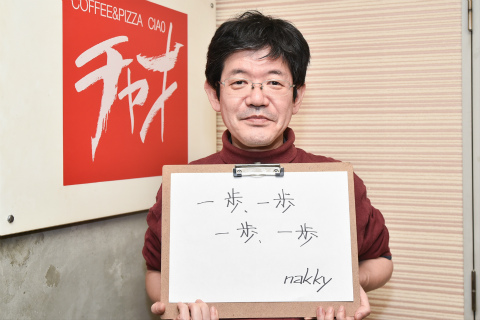 COFFEE&PIZZA CIAO
チャオ
一歩、一歩
一歩、一歩
nakky